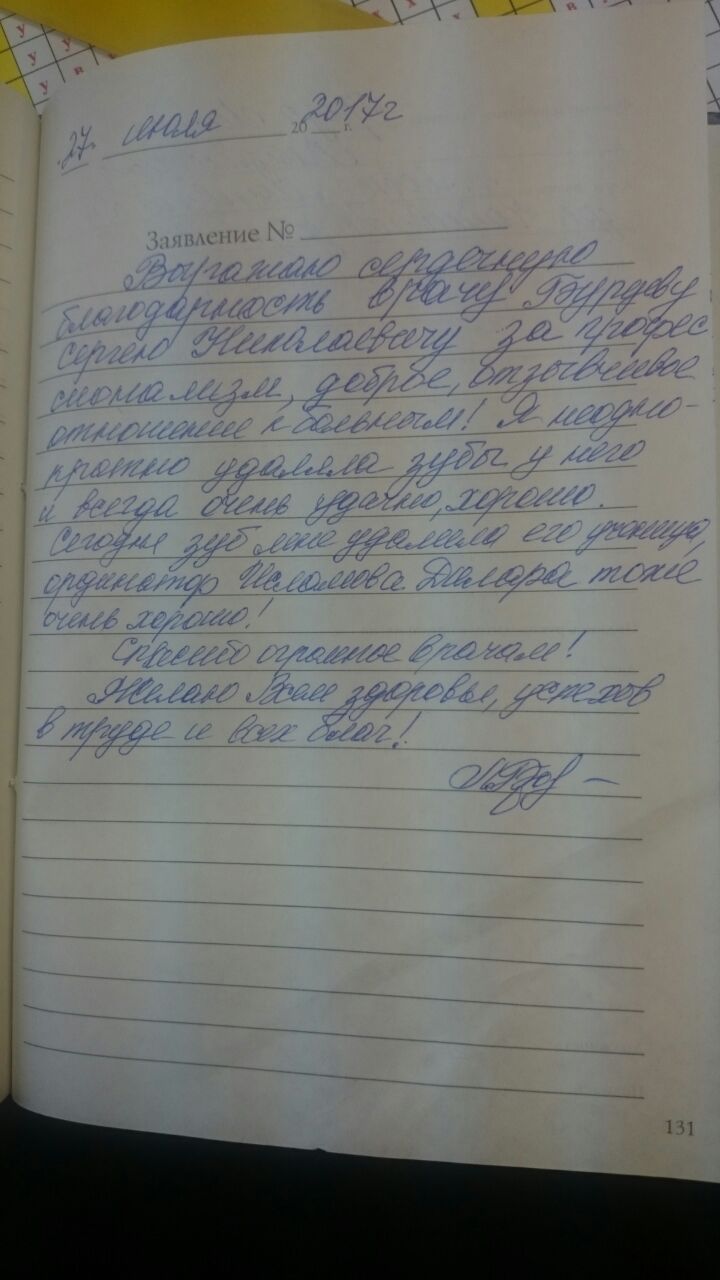 27. июля 20__ г. 2017г
Заявление №
Выражаю сердечную
благодарность врачу Бурдеву
Сергею Николаевичу за профес
сионализм, доброе, отзывчивое
отношение к больным! Я неодно-
кратно удаляла зубы у него
и всегда очень удачно, хорошо.
Сегодня зуб мне удалила его ученица,
ординатор Исламова Диляра тоже
очень хорошо!
Спасибо огромное врачам!
Желаю Всем здоровья, успехов
в труде и всех благ!
131